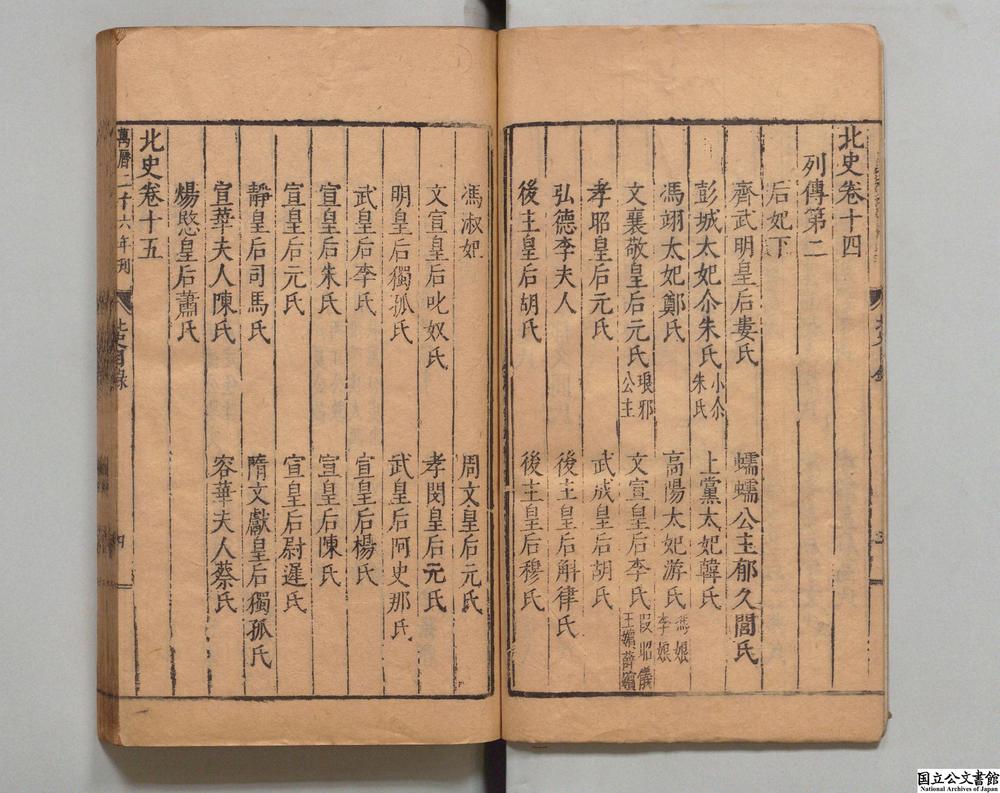 北史卷十四
列傳第二
后妃下
齊武明皇后婁氏 蠕蠕公主郁久閭氏
彭城太妃尒朱氏 小尒朱氏 上黨太妃韓氏
馮翊太妃鄭氏 高陽太妃游氏 馮娘 李娘
文襄敬皇后元氏 琅邪公主 文宣皇后李氏 段昭儀 王嬪 薛嬪
孝昭皇后元氏 武成皇后胡氏
弘德李夫人 後主皇后斛律氏
後主皇后胡氏 後主皇后穆氏
馮淑妃 周文皇后元氏
文宣皇后叱奴氏 孝閔皇后元氏
明皇后獨孤氏 武皇后阿史那氏
武皇后李氏 宣皇后楊氏
宣皇后朱氏 宣皇后陳氏
宣皇后元氏 宣皇后尉遲氏
靜皇后司馬氏 隋文獻皇后獨孤氏
宣華夫人陳氏 容華夫人蔡氏
煬愍皇后蕭氏
北史卷十五
萬曆二十六年刊
北史目錄
四
国立公文書館
National Archives of Japan